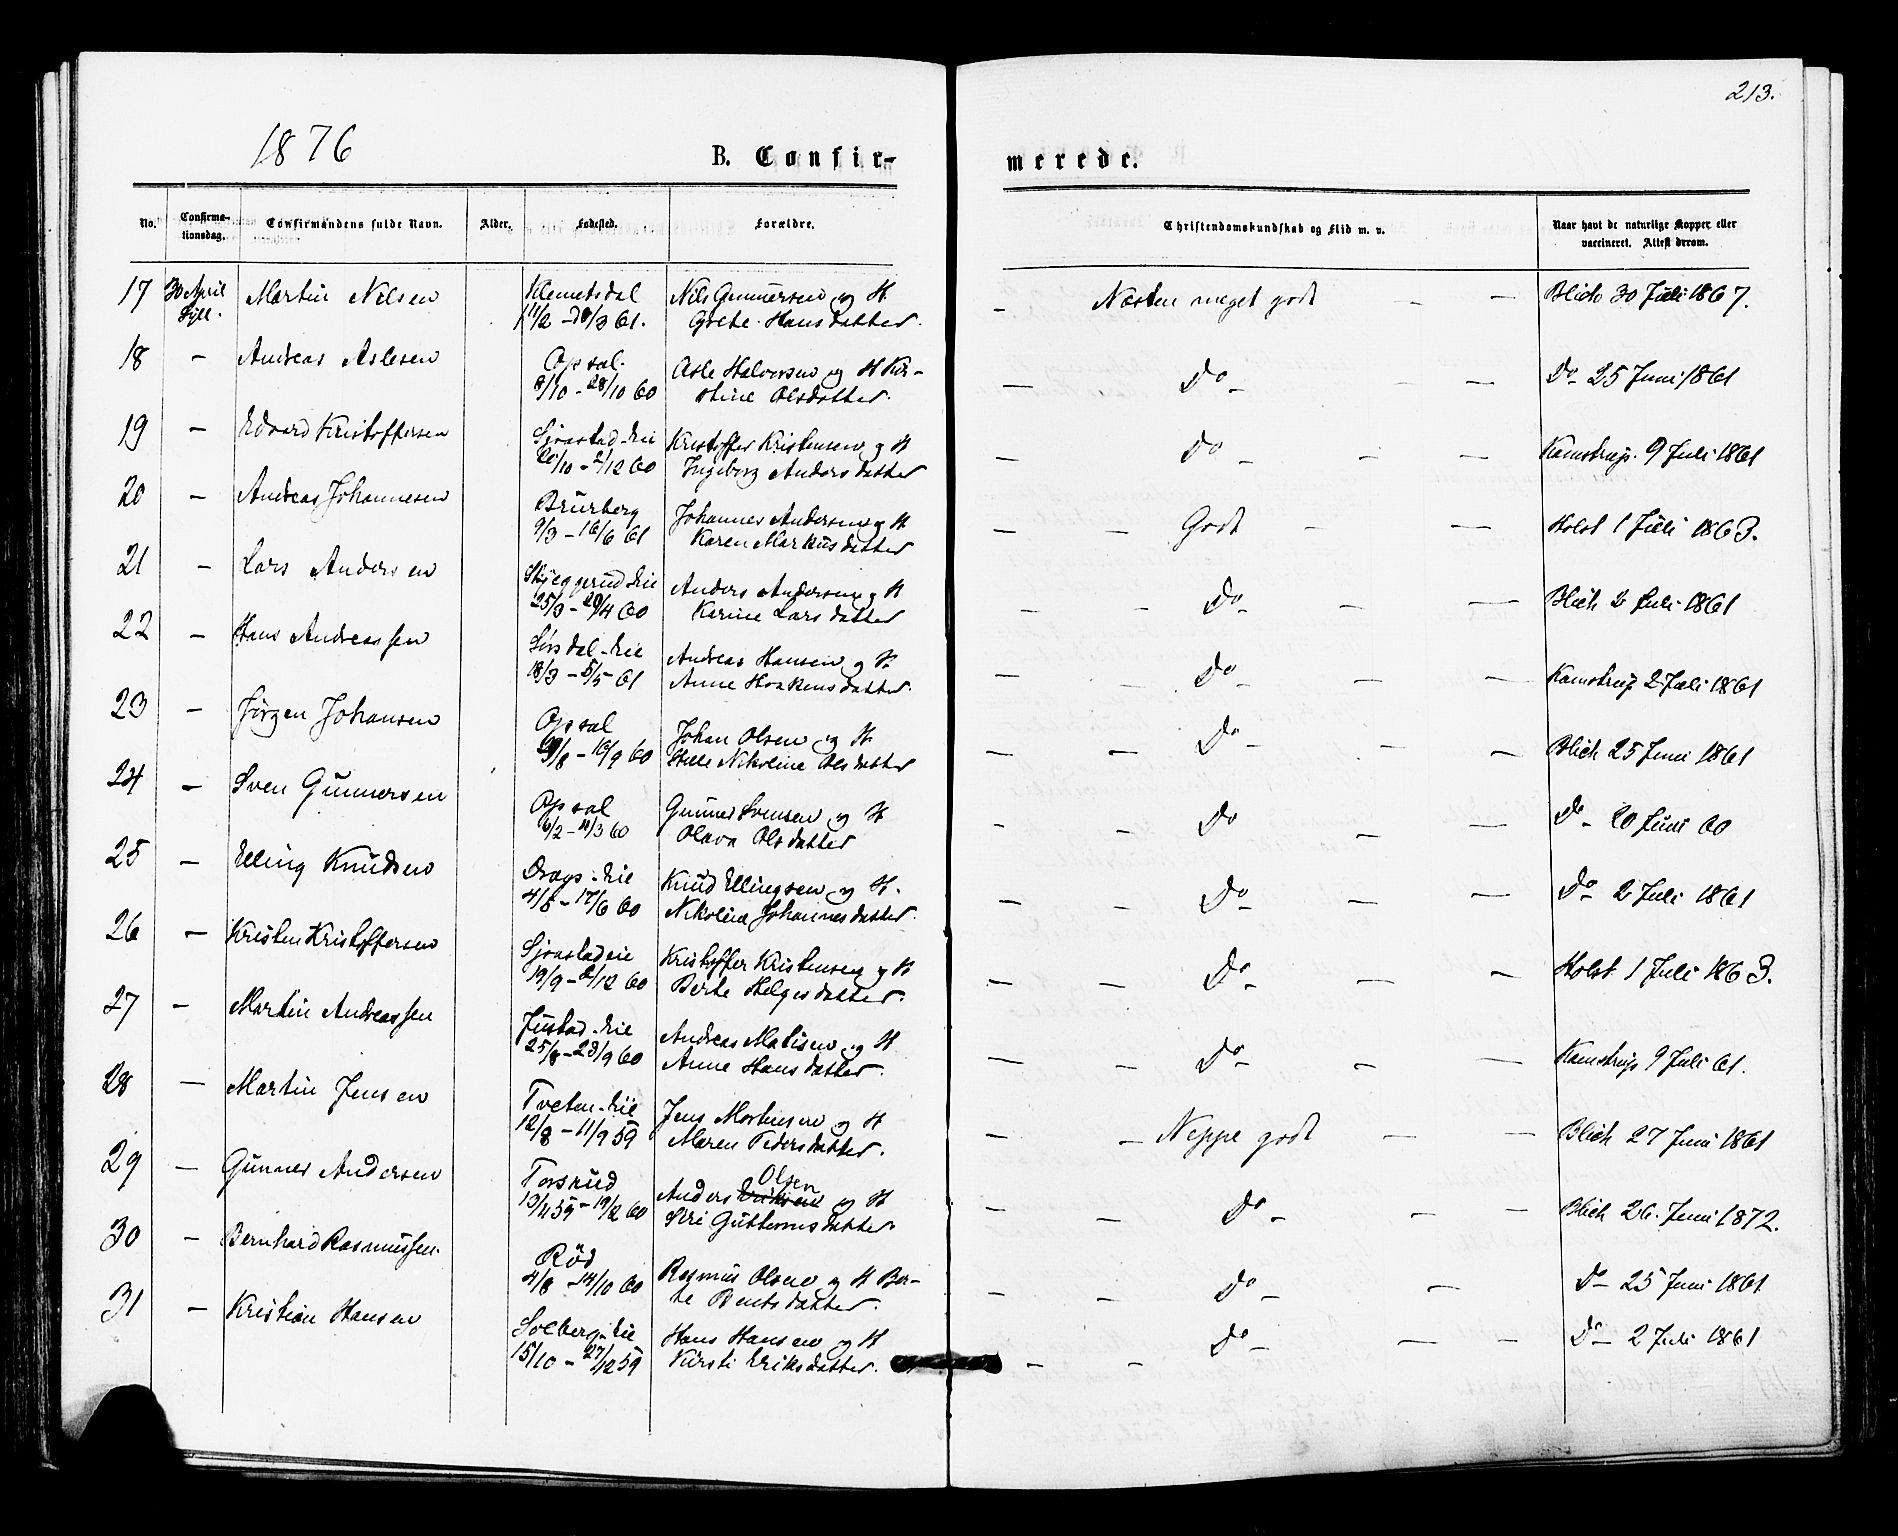 213.
1876
B. Confir-
merede.
No.
Confirma-
tionsdag.
Confirmandens fulde Navn.
Alder.
Fødested.
Forældre.
Christendomskundskab og Flid m. v.
Naar havt de naturlige Kopper eller
vaccineret. Attest derom.
17 30 April Martin Nilsen Klemetsdal Nils Gunnersen og H — Næsten meget godt — — Blich 30 Juli 1867.
Lyll. 11/2 – 30/3 61. Grete Hansdatter.
18 — Andreas Aslesen Opsal. Asle Halvorsen og H Kir- — Do — — — Do 25 Juni 1861
8/10 – 28/10 60 stine Olsdatter.
19 — Edvard Kristoffersen Sjøastad-Eie Kristoffer Kristensen og H — Do — — — Kamstrup. 9 Juli 1861
20/10 – 2/12 60 Ingeborg Andersdatter
20 — Andreas Johannesen Brurberg Johannes Andersen og H — — Godt — — Holst 1 Juli 1863.
9/3 – 16/6 61 Karen Markusdatter
21 — Lars Andersen Skjeggerud Eie Anders Andersen og H — — Do — — — Blich 2 Juli 1861
25/3 – 29/4 60 Karine Larsdatter
22 — Hans Andreassen Sørsdal-Eie Andreas Hansen og H. — — Do — — — Kamstrup 2 Juli 1861
18/3 – 5/5 61 Anne Haakensdatter.
23 — Jørgen Johansen Opsal Johan Olsen og H. — — Do — — — Blich 25 Juni 1861
29/8 – 16/9 60 Helle Nikoline Olsdatter
24 — Sven Gunnersen Opsal Gunner Svensen og H — — Do — — Do 20 Juni 60
6/2 – 11/3 60 Olava Olsdatter
25 — Elling Knudsen Drags-Eie Knud Ellingsen og H. — — Do — — — Do 2 Juli 1861
4/5 – 17/6 60 Nikoline Johannesdatter.
26 — Kristen Kristoffersen Sjøastadeie Kristoffer Kristensen og H — — Do — — — Holst 1 Juli 1863.
19/9 – 2/12 60 Berte Helgesdatter.
27 — Martin Andreassen Justad-Eie Andreas Matisen og H — — Do — — — Kamstrup 9 Juli 61.
25/8 – 23/9 60 Anne Hansdatter.
28 — Martin Jensen Tveten-Eie Jens Mortensen og H — — Neppe godt — — Blich 27 Juni 1861
12/8 – 11/9 59 Maren Pedersdatter.
29 — Gunner Andersen Torsrud Anders Olsen og H — — Do — — — Blich 26. Juni 1872.
13/11 59 – 19/2 60 Siri Guttormsdatter
30 — Bernhard Rasmussen. Rød Rasmus Olsen og H Ber- — — Do — — Do 25 Juni 1861
4/8 – 14/10 60 te Bentsdatter.
31 — Kristian Hansen Solberg-Eie Hans Hansen og H — — Do — — — Do — 2 Juli 1861
15/10 – 27/12 59 Kirsti Eriksdatter.